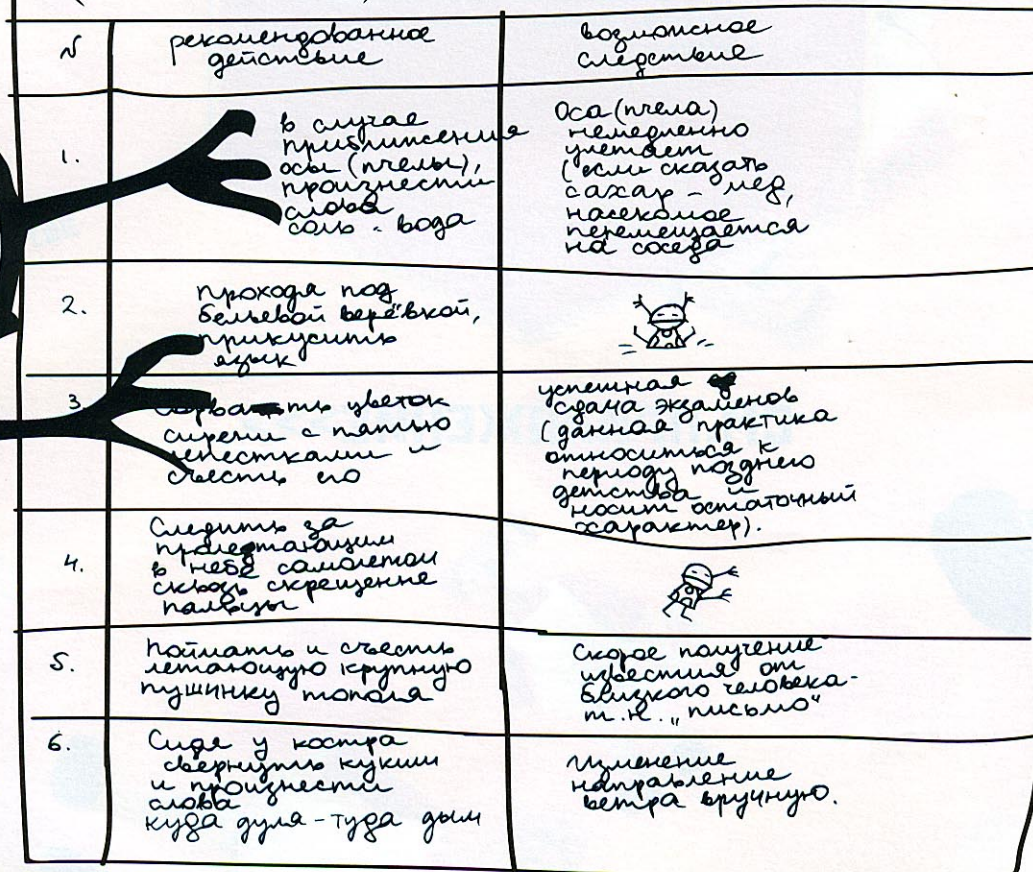 N
рекомендованное
действие
возможное
следствие
1.
в случае
приближения
осы (пчелы),
произнести
слова
соль - вода
Оса (пчела)
немедленно
улетает
(если сказать
сахар - мёд,
насекомое
перемещается
на соседа
2.
проходя под
бельевой верёвкой,
прикусить
язык
3.
цветок
сирени с пятью
лепестками и
съесть его
успешная
сдача экзаменов
(данная практика
относиться к
периоду позднего
детства и
носит остаточный
характер).
4.
Следить за
пролетающим
в небе самолетом
сквозь скрещенне
пальцы
5.
Поймать и съесть
летающую крупную
пушинку тополя
Скорое получение
известия от
близкого человека -
т.н. „письмо"
6.
Сидя у костра
свернуть кукиш
и произнести
слова
куда дуля - туда дым
Изменение
направление
ветра вручную.